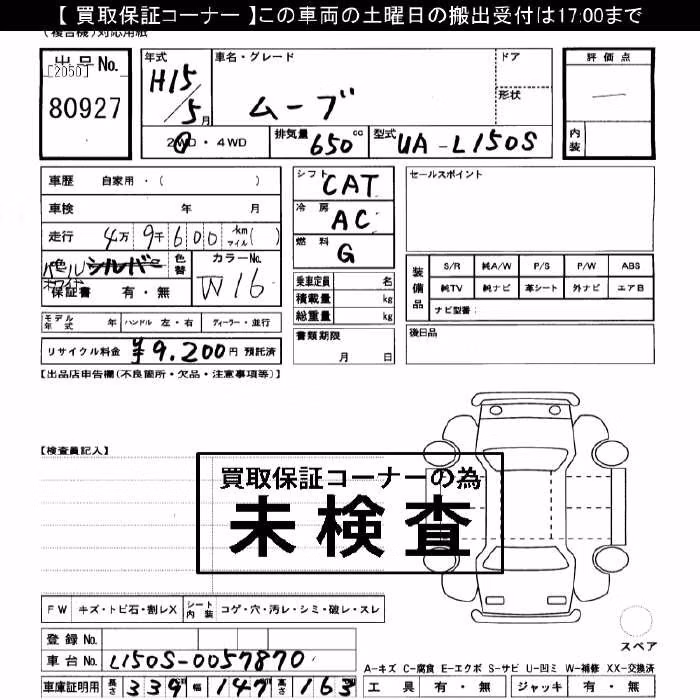 【 買取保証コーナー 】この車両の土曜日の搬出受付は17:00まで
(複合機)対応用紙
出品No.
[2050]
80927
年式
H15/5月
車名・グレード
ムーブ
ドア
形状
評価点
内装
2WD・4WD
排気量 650cc
型式 UA-L150S
車歴 自家用・( )
車検 年 月
走行 4万9千600 km マイル( )
色 シルバー
パールホワイト
色替
カラーNo.
W16
保証書 有・無
モデル年式 年
ハンドル 左・右
ディーラー・並行
リサイクル料金 ¥9.200円 預託済
シフト CAT
冷房 AC
燃料 G
乗車定員 名
積載量 kg
総重量 kg
書類期限
月 日
セールスポイント
装備品
S/R 純A/W P/S P/W ABS
純TV 純ナビ 革シート 外ナビ エアB
ナビ型番:
後日品
【出品店申告欄(不良箇所・欠品・注意事項等)】
【検査員記入】
買取保証コーナーの為
未検査
FW キズ・トビ石・割レX
シート内装 コゲ・穴・汚レ・シミ・破レ・スレ
登録No.
車台No. L150S-0057870
車庫証明用 長さ 339 幅 147 高さ 163
スペア
A-キズ C-腐食 E-エクボ S-サビ U-凹ミ W-補修 XX-交換済
工具 有・無 ジャッキ 有・無